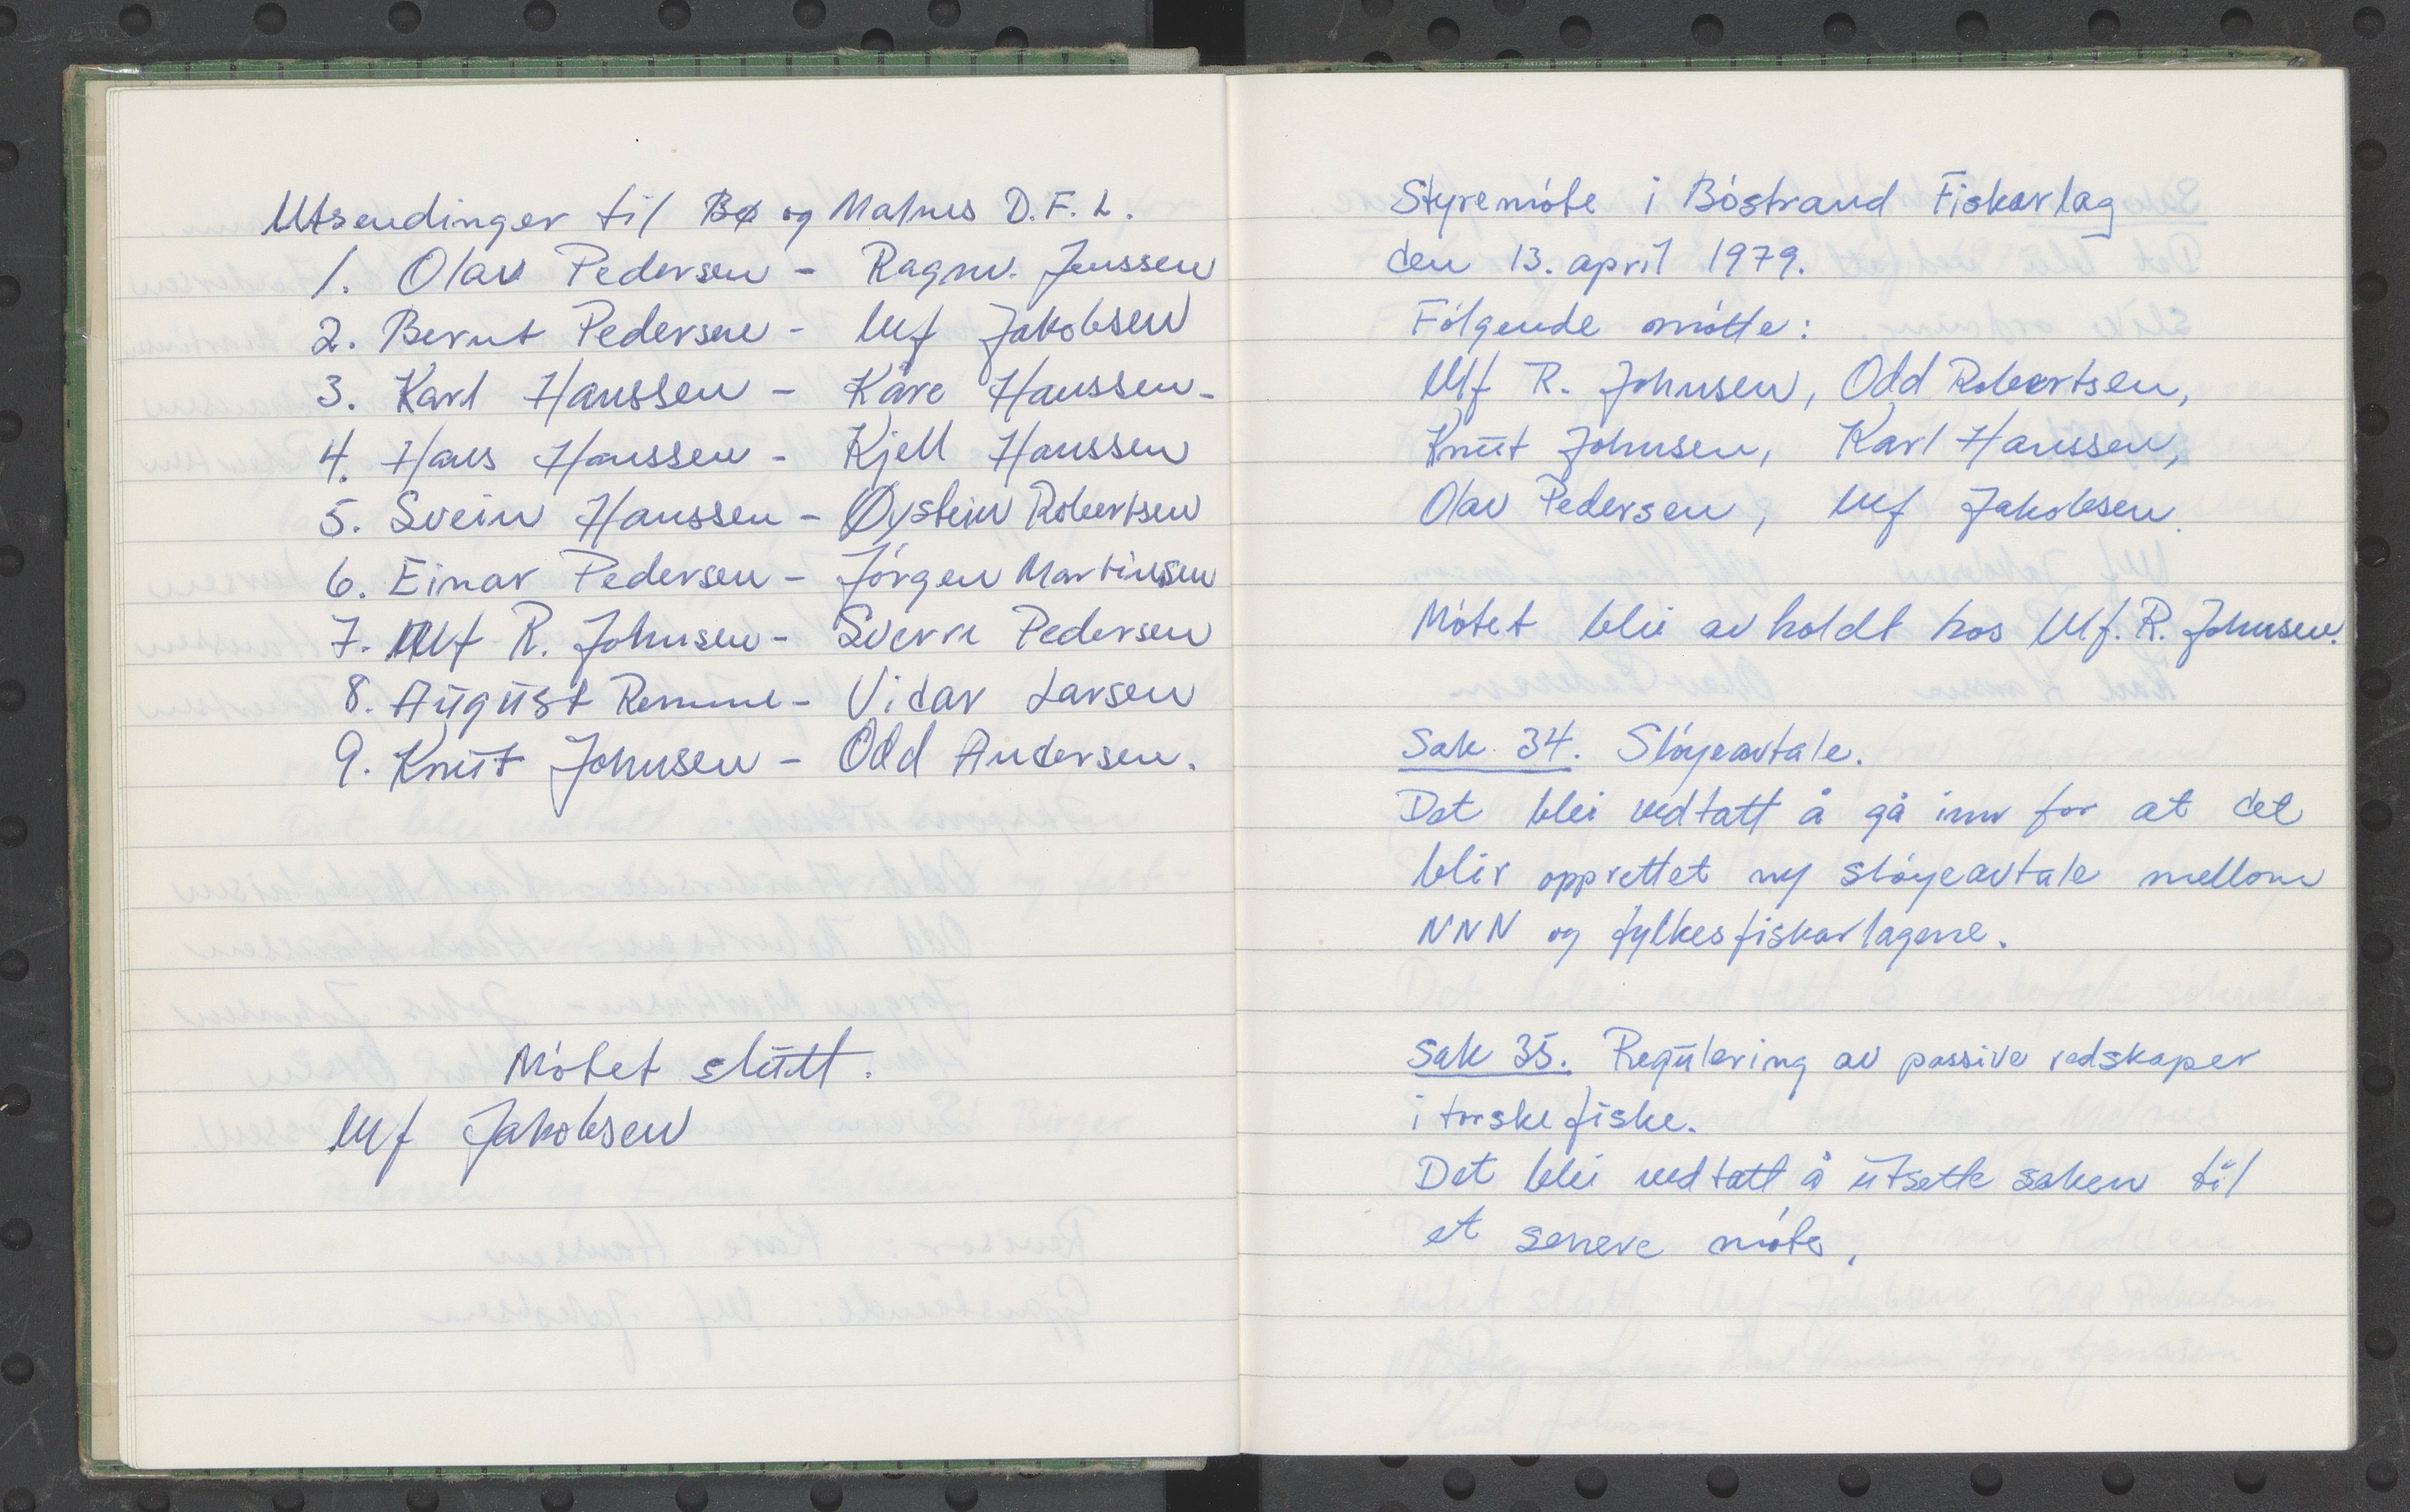 Utsendinger til Bø og Malnes D.F.L.
1. Olav Pedersen - Ragnv. Jenssen
2. Bernt Pedersen - Ulf Jakobsen
3. Karl Hanssen - Kåre Hanssen -
4. Hans Hanssen - Kjell Hanssen
5. Svein Hanssen - Øystein Robertsen
6. Einar Pedersen - Jórgen Martinsen
7. Ulf R. Johnsen - Sverre Pedersen
8. August Remme - Vidar Larsen
9. Knut Johnsen - Odd Andersen.
Mótet slutt.
Ulf Jakobsen
Styremóte i Bóstrand Fiskarlag
den 13. april 1979.
Fólgende mótte:
Ulf R. Johnsen, Odd Robertsen,
Knut Johnsen, Karl Hanssen,
Olav Pedersen, Ulf Jakobsen.
Mótet blei avholdt hos Ulf. R. Johnsen.
Sak 34. Slóyeavtale.
Det blei vedtatt å gå inn for at det
blir opprettet ny slóyeavtale mellom
NNN og fylkesfiskarlagene.
Sak 35. Regulering av passive redskaper
i torskefiske.
Det blei vedtatt å utsette saken til
et senere móte.